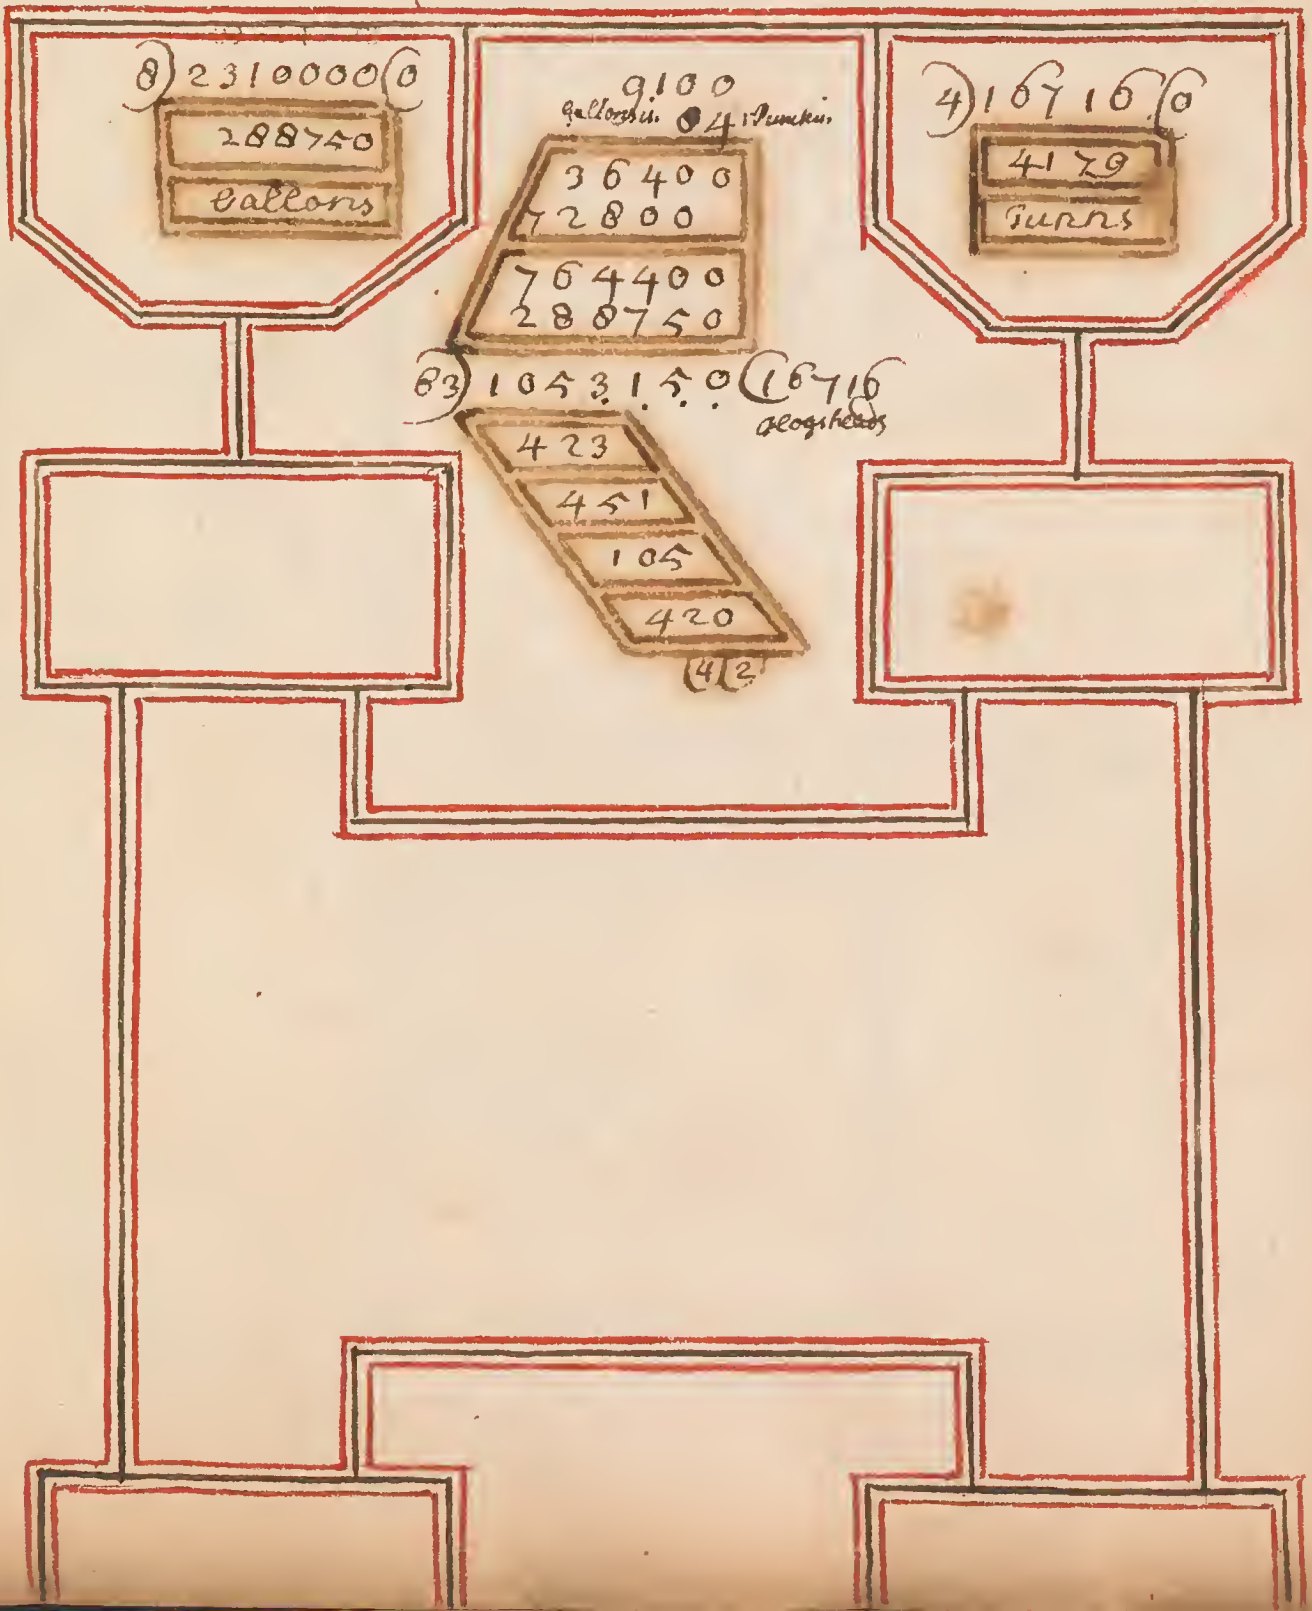 8) 2310000 (0
288750
Gallons
9100
Gallons in 84 1 Punchin
36400
72800
764400
288750
63) 1053150 (16716
Hogsheads
423
451
105
420
(42)
4) 16716 (0
4179
Tunns